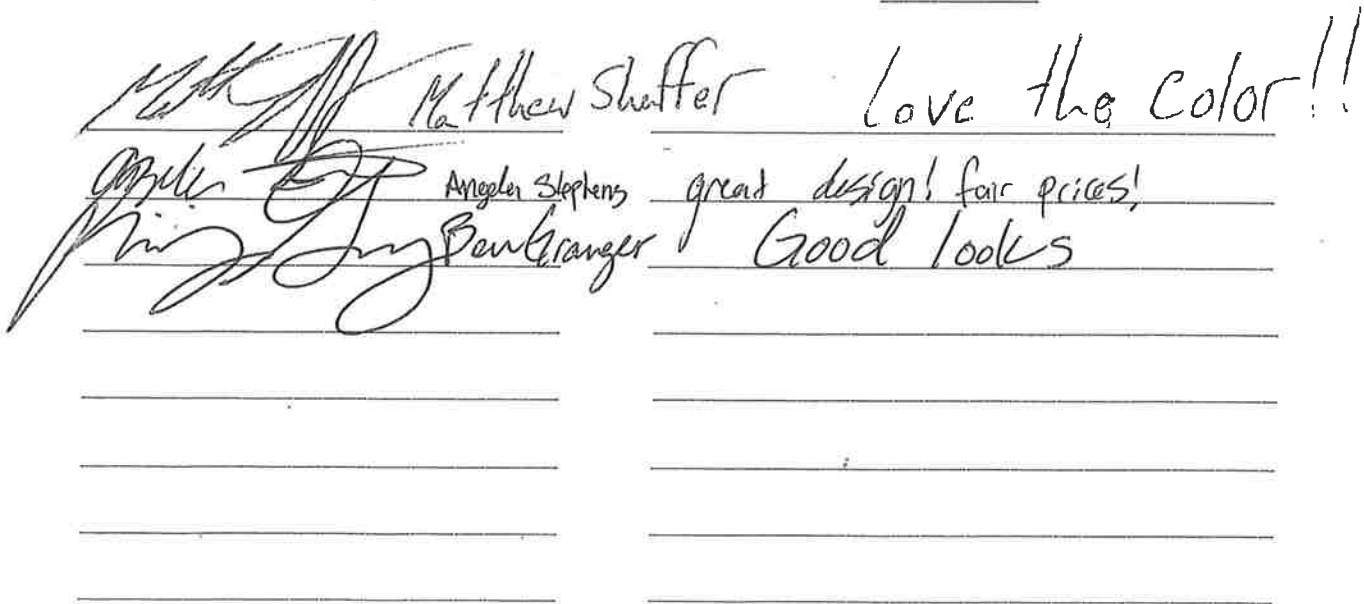 Matthew Shaffer Love the Color!!
Angela Stephens great design! fair prices!
Ben Granger Good looks